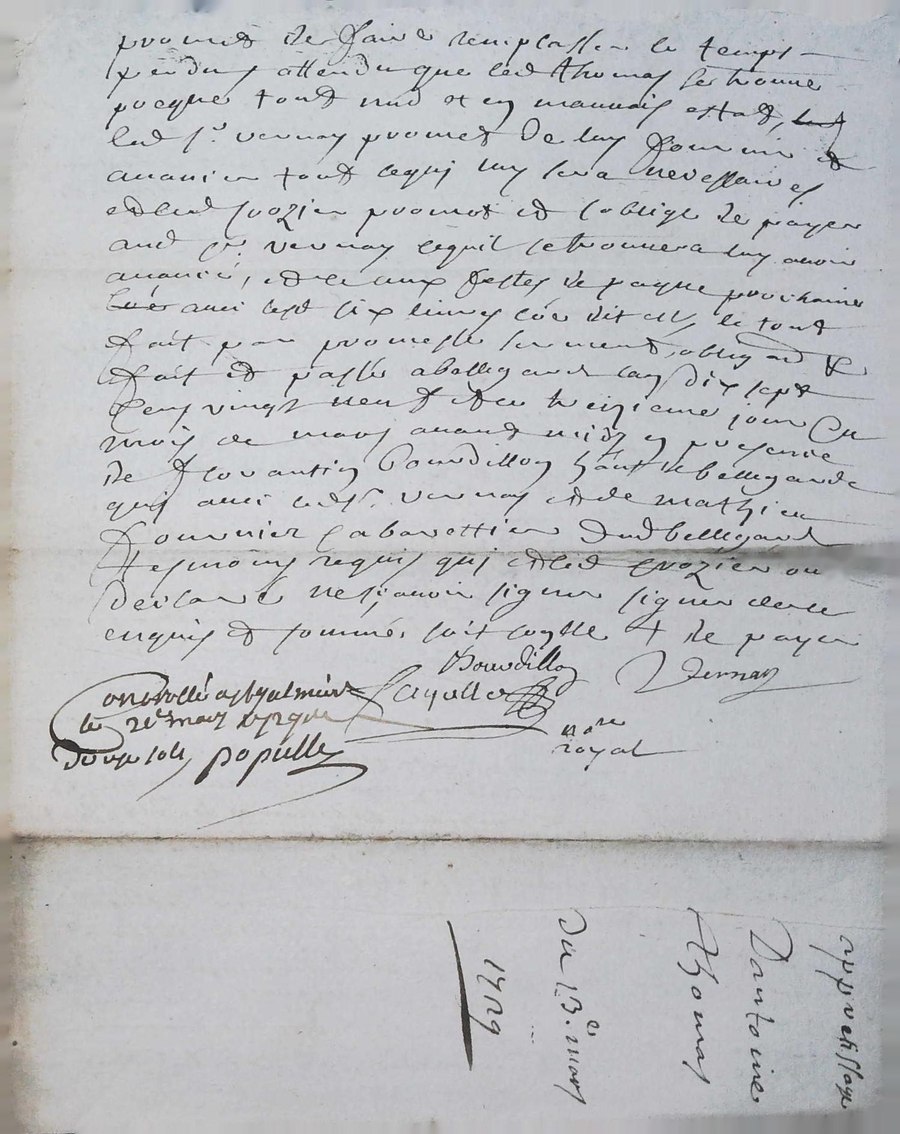 promet de faire remplasser le temps
perdu, attendu que led thomas se trouve
presque tout nud et en mauvais estat,
led sr. vernay promet de luy fournir et
avancer tout ce qui luy sera nevessaires
et led grozier promet et soblige de payer
aud sr. vernay ce quil se trouvera luy avoir
avancé, et ce aux festes de paque prochaine
avec lesd six livres cy dit es, le tout
fait par promesse serment, obligaon &
fait et passé a bellegarde lan dix sept
cens vingt neuf et du treizieme jour du
mois de mars avant midy en presence
de florantin bourdillon hant de bellegarde
qui avec led sr. vernay et de mathieu
fournier cabarettier dud bellegard
tesmoins requis qui et led grozier on
declaré ne sçavoir signer signer de ce
enquis et sommé, soit scelle + de payer
Bourdillon Vernay
Controllé a st galmier
le 21e mars 1729
douze sols populle
nore
royal
apprentissage
Dantoine
thomas
du 13.e mars
1729